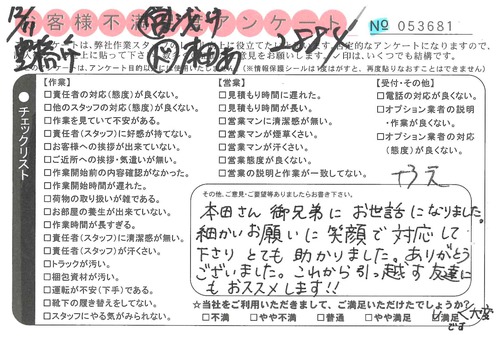 お客様不満足度アンケート
№ 053681
トは、弊社作業スタッフの
上に役立てたい
否定的なアンケートになりますので、
ご意見をお願い
印は、いくつでも結構です。
のため、アンケート目的以外に
(※情報保護シールは1度はがすと、再度貼りなおすことはできません)
チェックリスト
【作業】
□責任者の対応(態度)が良くない。
□他のスタッフの対応(態度)が良くない。
□作業を見ていて不安がある。
□責任者(スタッフ)に好感が持てない。
□お客様への挨拶が出来ていない。
□ご近所への挨拶・気遣いが無い。
□作業開始前の内容確認がなかった。
□作業開始時間が遅れた。
□荷物の取り扱いが雑である。
□お部屋の養生が出来ていない。
□作業時間が長すぎる。
□責任者(スタッフ)に清潔感が無い。
□責任者(スタッフ)が汗くさい。
□トラックが汚い。
□梱包資材が汚い。
□運転が不安(下手)である。
□靴下の履き替えをしてない。
□スタッフにやる気がみられない。
【営業】
□見積もり時間に遅れた。
□見積もり時間が長い。
□営業マンに清潔感が無い。
□営業マンが煙草くさい。
□営業マンが汗くさい。
□営業態度が良くない。
□営業の説明と作業が一致してない。
【受付・その他】
□電話の対応が良くない。
□オプション業者の説明
・作業が良くない。
□オプション業者の対応
(態度)が良くない。
その他、ご意見・ご要望等ありましたらお書き下さい。
本田さん御兄弟にお世話になりました。
細かいお願いに笑顔で対応して
下さりとても助かりました。ありがとう
ございました。これから引っ越す友達に
もおススメします!!
☆当社をご利用いただきまして、ご満足いただけたでしょうか?
□不満 □やや不満 □普通 □やや満足 □満足
大変
です